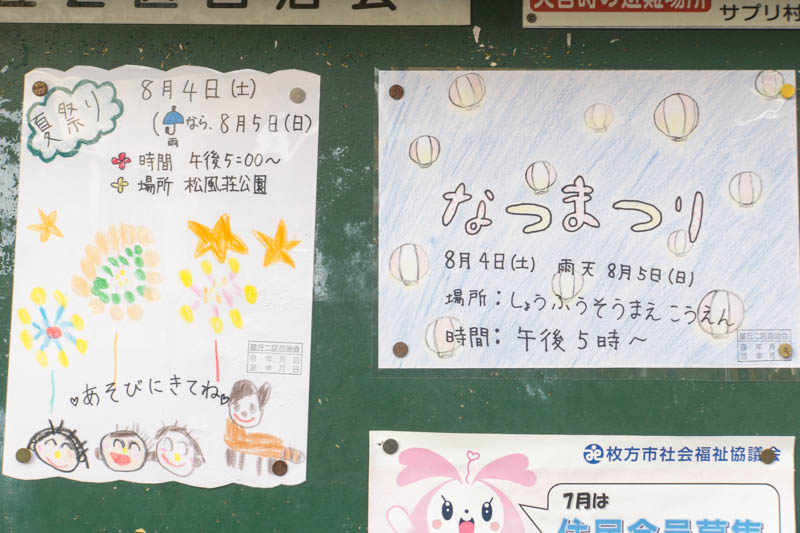 災害時の避難場所
サプリ村
夏祭り
8月4日(土)
(なら、8月5日(日)
雨
時間 午後5:00〜
場所 松風荘公園
星丘二区自治会
自 年 月 日
至 年 月 日
あそびにきてね
なつまつり
8月4日(土) 雨天 8月5日(日)
場所:しょうふうそうまえこうえん
時間:午後5時〜
星丘二区自治会
自 年 月 日
至 年 月 日
枚方市社会福祉協議会
7月は
住民会員募集